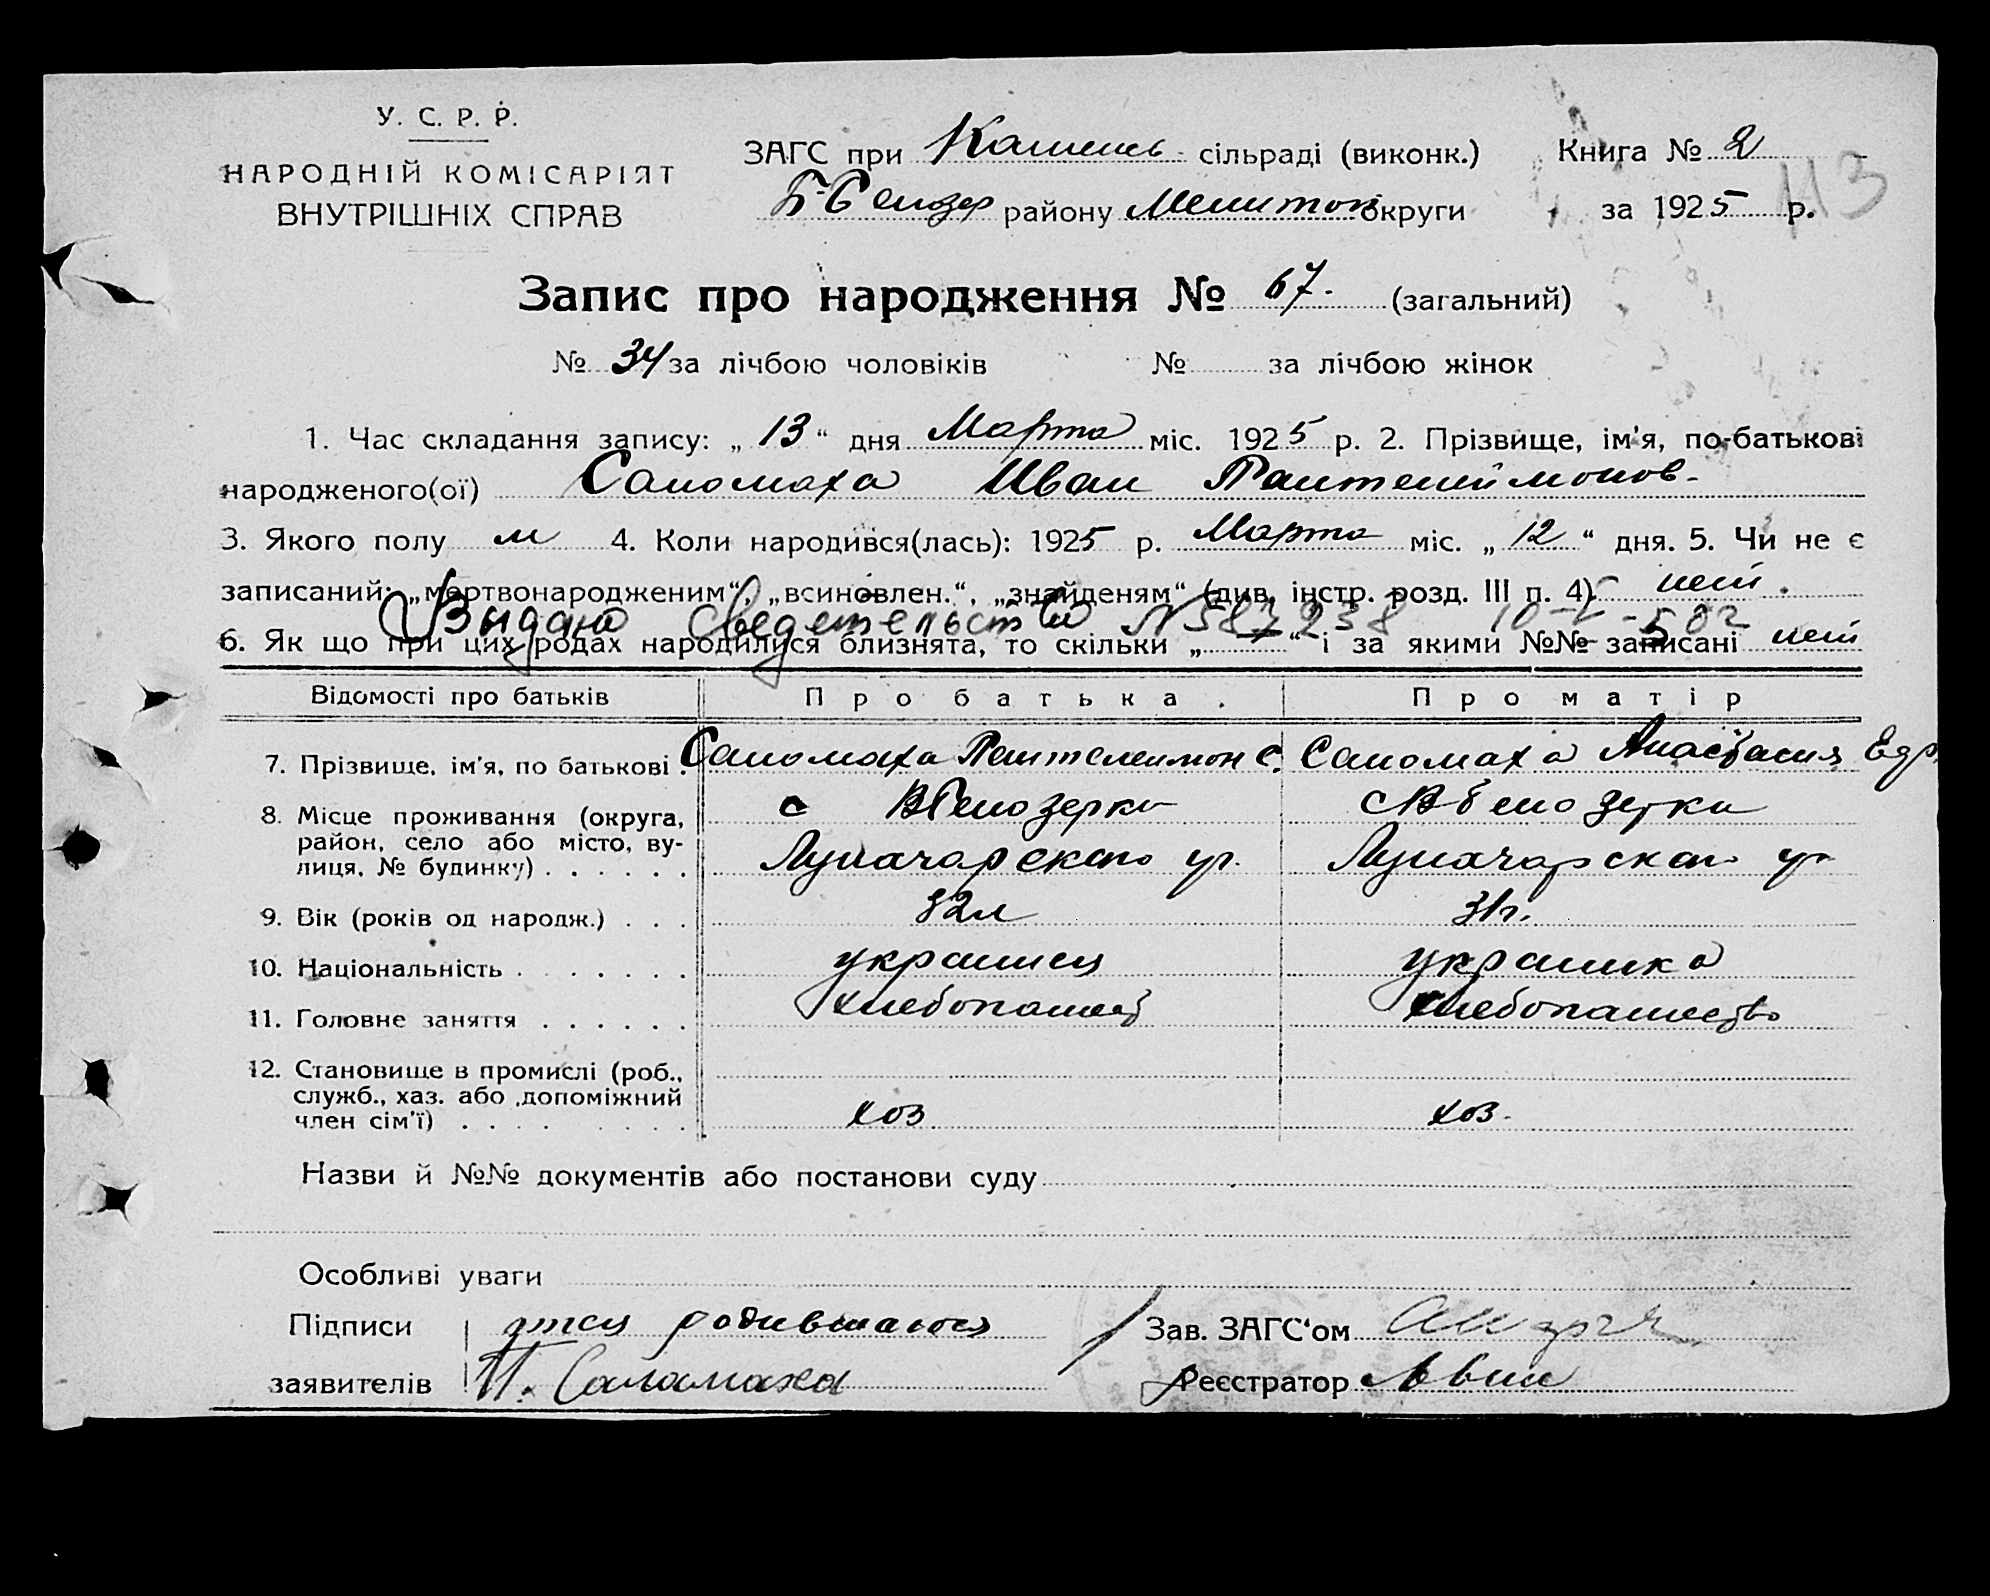 У. С. Р. Р.
НАРОДНІЙ КОМІСАРІЯТ
ВНУТРІШНІХ СПРАВ
ЗАГС при Камень- сільраді (виконк.) Книга № 2
району Мелитоп округи за 1925 р. 113
Запис про народження № 67. (загальний)
№ 34 за лічбою чоловіків № за лічбою жінок
1. Час складання запису: „ 13 “ дня Марта міс. 1925 р. 2. Прізвище, ім'я, по-батькові
народженого(ої) Саломаха Иван Пантелеймонов-
3. Якого полу м 4. Коли народився(лась): 1925 р. Марта міс. „ 12 “ дня. 5. Чи не є
записаний: „мертвонародженим“, „всиновлен.“, „знайденям“ (див. інстр. розд. III п. 4) нет.
Выдано свидетельство N 587238
6. Як що при цих родах народилися близнята, то скільки „ “ і за якими №№ записані нет
Відомості про батьків Про батька. Про матір
7. Прізвище, ім'я, по батькові . Саломаха Пантелеимон С. Саломаха Анастасия Едр.
8. Місце проживання (округа, район, село або місто, вулиця, № будинку) . . . . . . с ВБелозерка с ВБелозерка
Луначарского ул. Луначарского ул
9. Вік (років од народж.) . . . 32л 31г.
10. Національність . . . . . . . украинец украинка
11. Головне заняття . . . . . . хлебопашест хлебопашество
12. Становище в промислі (роб., служб., хаз. або допоміжний член сім'ї) . . . . . . . . хоз хоз.
Назви й №№ документів або постанови суду
Особливі уваги
Підписи отец родившагося Зав. ЗАГС'ом
заявителів П. Саламаха Реєстратор